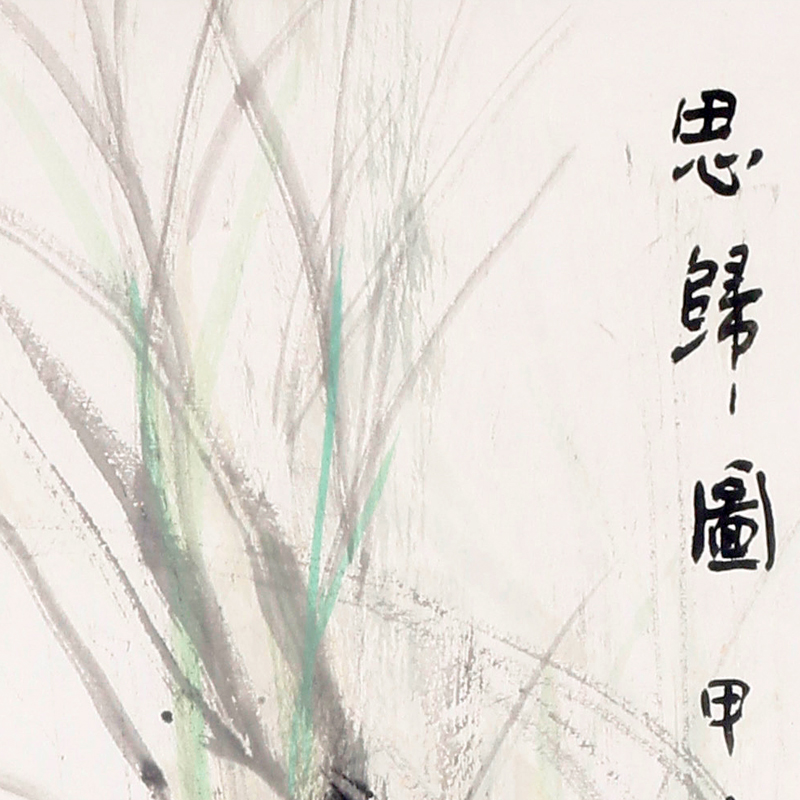 思歸圖甲